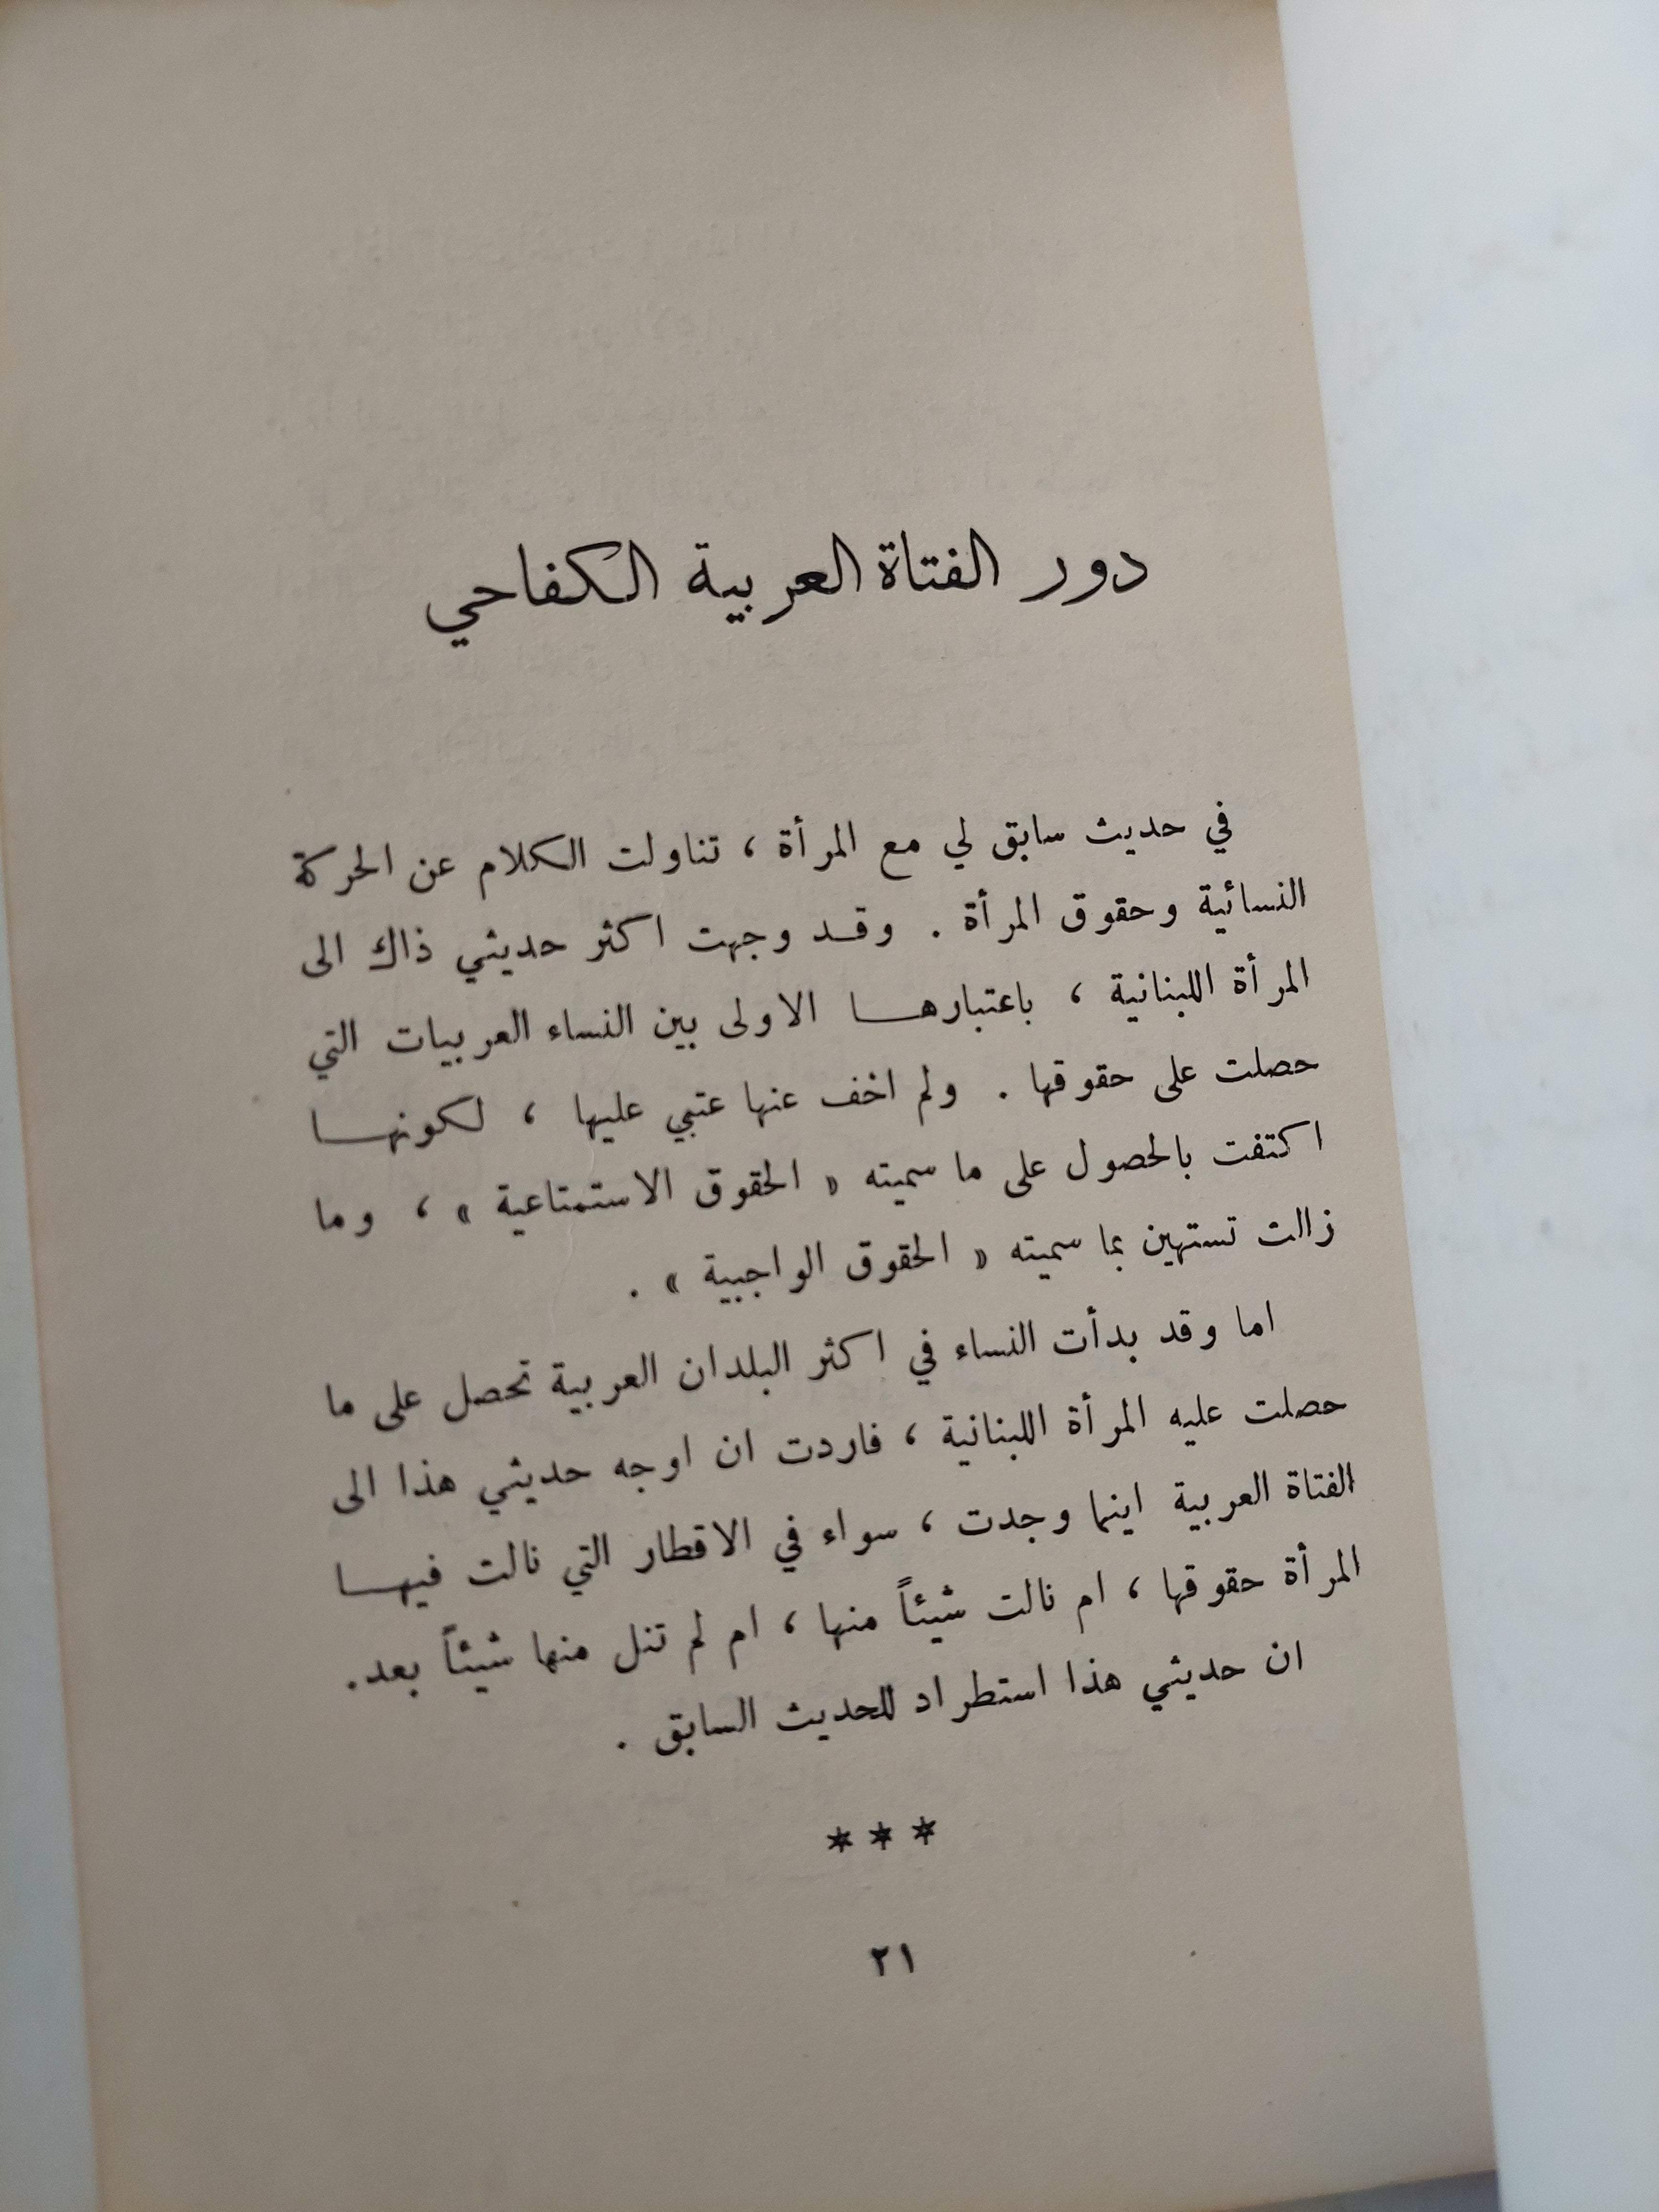 دور الفتاة العربية الكفاحي
في حديث سابق لي مع المرأة ، تناولت الكلام عن الحركة
النسائية وحقوق المرأة . وقـد وجهت اكثر حديثي ذاك الى
المرأة اللبنانية ، باعتبارهـــا الاولى بين النساء العربيات التي
حصلت على حقوقها . ولم اخف عنها عتبي عليها ، لكونهـــا
اكتفت بالحصول على ما سميته « الحقوق الاستمتاعية » ، وما
زالت تستهين بما سميته « الحقوق الواجبية » .
اما وقد بدأت النساء في اكثر البلدان العربية تحصل على ما
حصلت عليه المرأة اللبنانية ، فاردت ان اوجه حديثي هذا الى
الفتاة العربية اينما وجدت ، سواء في الاقطار التي نالت فيهـــا
المرأة حقوقها ، ام نالت شيئاً منها ، ام لم تنل منها شيئاً بعد.
ان حديثي هذا استطراد للحديث السابق .
***
٢١